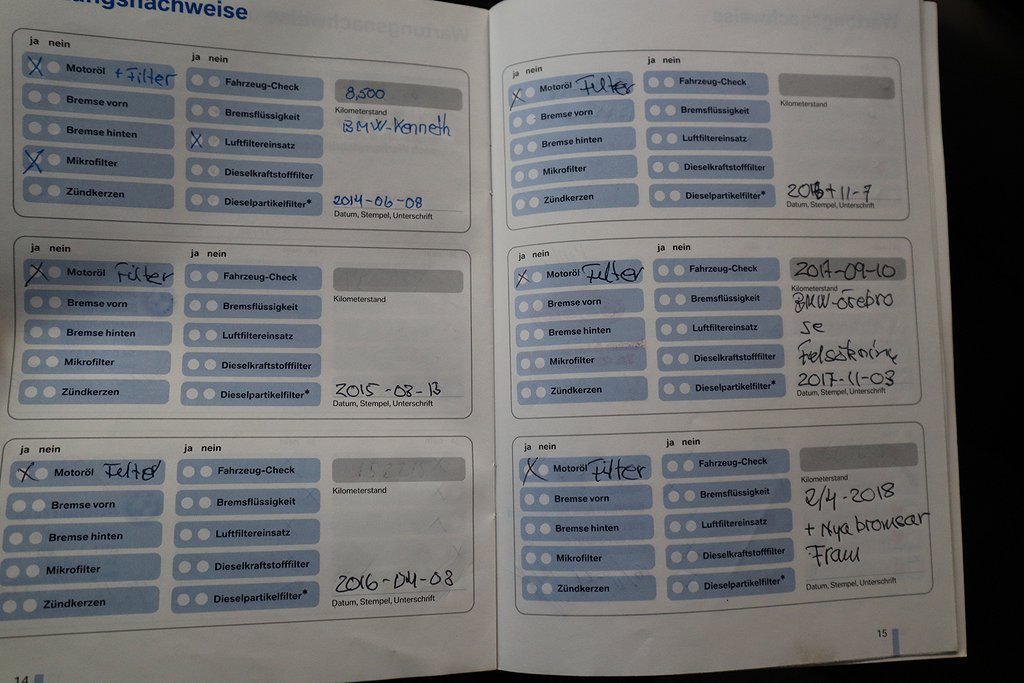 ungsnachweise
ja nein
Motoröl + Filter
Bremse vorn
Bremse hinten
Mikrofilter
Zündkerzen
ja nein
Fahrzeug-Check
Bremsflüssigkeit
Luftfiltereinsatz
Dieselkraftstofffilter
Dieselpartikelfilter*
8,500
Kilometerstand
BMW-Kenneth
2014-06-08
Datum, Stempel, Unterschrift
ja nein
Motoröl Filter
Bremse vorn
Bremse hinten
Mikrofilter
Zündkerzen
ja nein
Fahrzeug-Check
Bremsflüssigkeit
Luftfiltereinsatz
Dieselkraftstofffilter
Dieselpartikelfilter*
Kilometerstand
2015-03-13
Datum, Stempel, Unterschrift
ja nein
Motoröl Felter
Bremse vorn
Bremse hinten
Mikrofilter
Zündkerzen
ja nein
Fahrzeug-Check
Bremsflüssigkeit
Luftfiltereinsatz
Dieselkraftstofffilter
Dieselpartikelfilter*
Kilometerstand
2016-04-08
Datum, Stempel, Unterschrift
14
ja nein
Motoröl Filter
Bremse vorn
Bremse hinten
Mikrofilter
Zündkerzen
ja nein
Fahrzeug-Check
Bremsflüssigkeit
Luftfiltereinsatz
Dieselkraftstofffilter
Dieselpartikelfilter*
Kilometerstand
11-7
Datum, Stempel, Unterschrift
ja nein
Motoröl Filter
Bremse vorn
Bremse hinten
Mikrofilter
Zündkerzen
ja nein
Fahrzeug-Check
Bremsflüssigkeit
Luftfiltereinsatz
Dieselkraftstofffilter
Dieselpartikelfilter*
2017-09-10
Kilometerstand
BMW-Örebro
se
2017-11-03
Datum, Stempel, Unterschrift
ja nein
Motoröl Filter
Bremse vorn
Bremse hinten
Mikrofilter
Zündkerzen
ja nein
Fahrzeug-Check
Bremsflüssigkeit
Luftfiltereinsatz
Dieselkraftstofffilter
Dieselpartikelfilter*
Kilometerstand
2/4-2018
+ Nya bromsar
Fram
Datum, Stempel, Unterschrift
15